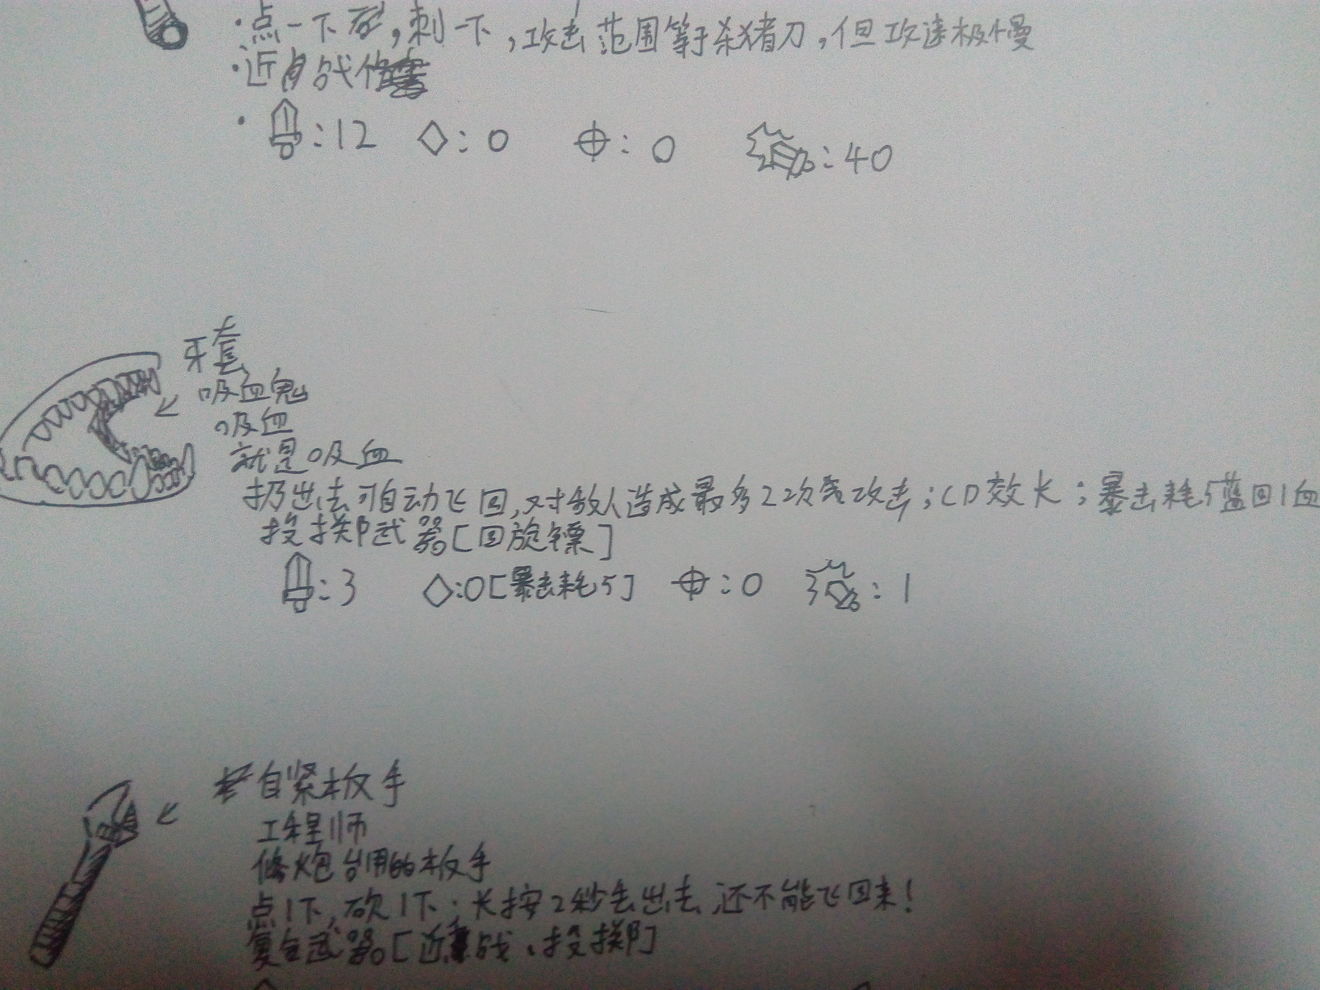 ·点一下砍,刺一下,攻击范围等于杀猪刀,但攻速极慢
·近战
· :12 :0 :0 :40
牙套
吸血鬼
吸血
就是吸血
扔出去可自动飞回,对敌人造成最多2次攻击;CD效长;暴击耗5蓝回1血
投掷武器[回旋镖]
:3 :0[暴击耗5] :0 :1
自紧板手
工程师
修炮台用的板手
点1下,砍1下;长按2秒丢出去,还不能飞回来!
复合武器[近战、投掷]